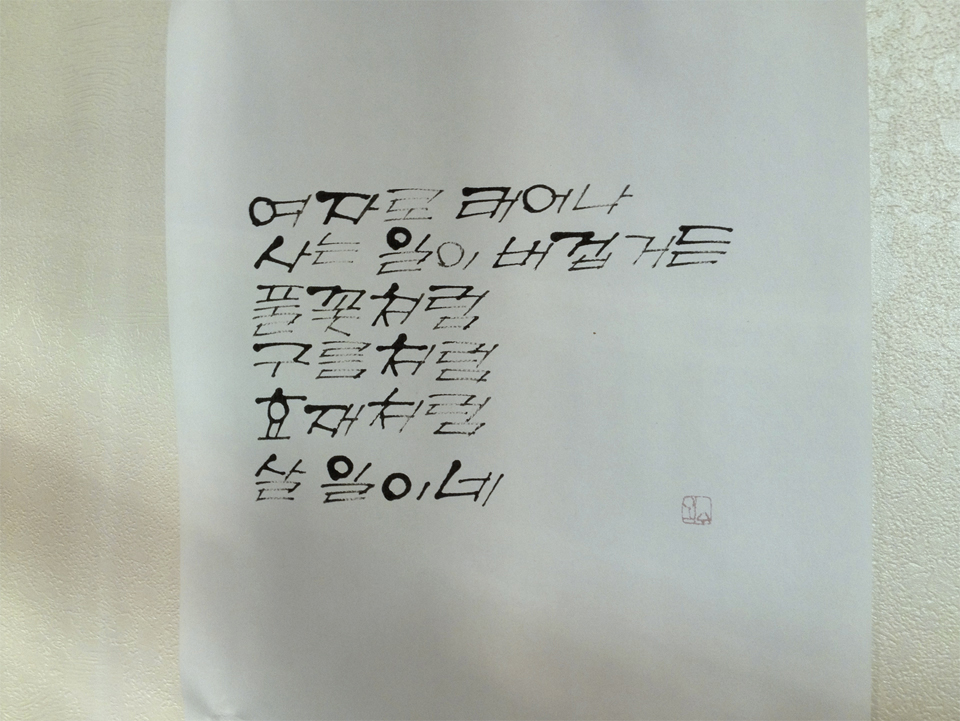 여자로 태어나
사는 일이 버겁거든
풀꽃처럼
구름처럼
효재처럼
살 일이네